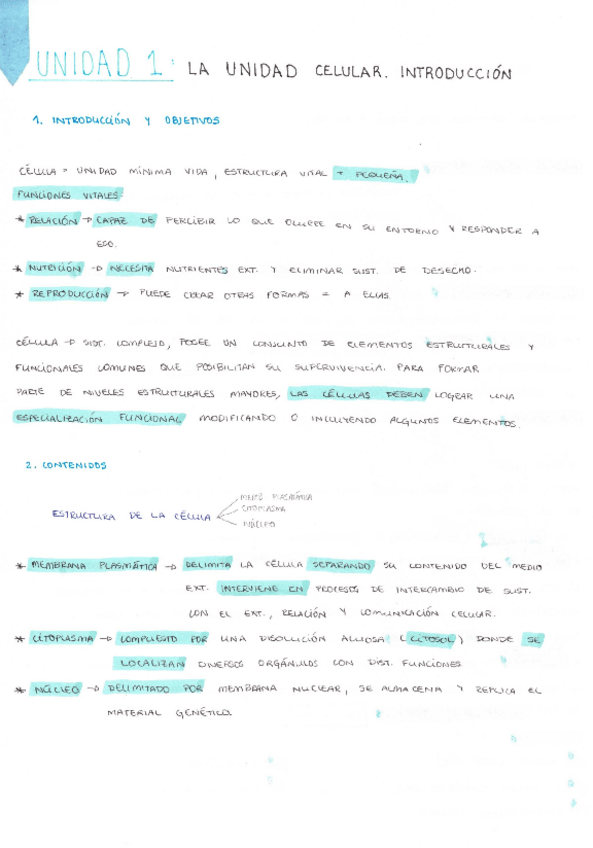 UNIDAD 1: LA UNIDAD CELULAR. INTRODUCCIÓN
1. INTRODUCCIÓN Y OBJETIVOS
CÉLULA = UNIDAD MÍNIMA VIDA, ESTRUCTURA VITAL + PEQUEÑA.
FUNCIONES VITALES:
* RELACIÓN → CAPAZ DE PERCIBIR LO QUE OCURRE EN SU ENTORNO Y RESPONDER A
ESO.
* NUTRICIÓN → NECESITA NUTRIENTES EXT. Y ELIMINAR SUST. DE DESECHO.
* REPRODUCCIÓN → PUEDE CREAR OTRAS FORMAS = A ELLAS.
CÉLULA → SIST. COMPLEJO, POSEE UN CONJUNTO DE ELEMENTOS ESTRUCTURALES Y
FUNCIONALES COMUNES QUE POSIBILITAN SU SUPERVIVENCIA. PARA FORMAR
PARTE DE NIVELES ESTRUCTURALES MAYORES, LAS CÉLULAS DEBEN LOGRAR UNA
ESPECIALIZACIÓN FUNCIONAL MODIFICANDO O INCLUYENDO ALGUNOS ELEMENTOS.
2. CONTENIDOS
MEMB PLASMÁTICA
CITOPLASMA
ESTRUCTURA DE LA CÉLULA
NÚCLEO
* MEMBRANA PLASMÁTICA → DELIMITA LA CÉLULA SEPARANDO SU CONTENIDO DEL MEDIO
EXT. INTERVIENE EN PROCESOS DE INTERCAMBIO DE SUST.
CON EL EXT., RELACIÓN Y COMUNICACIÓN CELULAR.
* CITOPLASMA → COMPUESTO POR UNA DISOLUCIÓN ACUOSA (CITOSOL) DONDE SE
LOCALIZAN DIVERSOS ORGÁNULOS CON DIST. FUNCIONES.
* NÚCLEO → DELIMITADO POR MEMBRANA NUCLEAR, SE ALMACENA Y REPLICA EL
MATERIAL GENÉTICO.